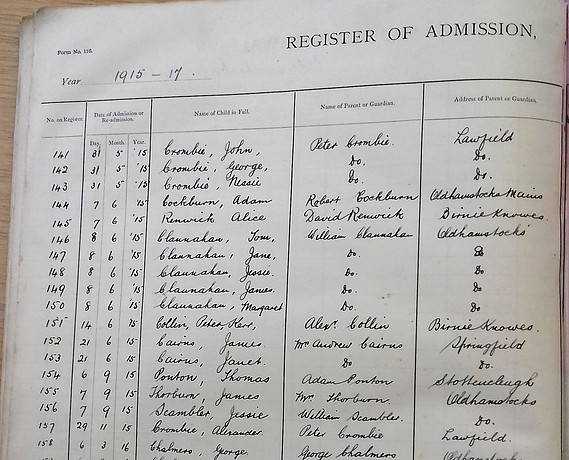 Form No. 11b.
REGISTER OF ADMISSION,
Year 1915 - 17.
No. on Register. Date of Admission or Re-admission. Name of Child in Full. Name of Parent or Guardian. Address of Parent or Guardian.
Day. Month. Year.
141 31 5 '15 Crombie, John, Peter Crombie. Lawfield
142 31 5 '15 Crombie, George, Do. Do.
143 31 5 '15 Crombie, Nessie Do. Do.
144 7 6 '15 Cockburn, Adam Robert Cockburn Oldhamstocks Mains
145 7 6 '15 Renwick Alice David Renwick Birnie Knowes.
146 8 6 '15 Clannahan, Tom, William Clannahan Oldhamstocks
147 8 6 '15 Clannahan, Jane, Do. Do
148 8 6 '15 Clannahan, Jessie. Do. Do
149 8 6 '15 Clannahan, James. Do. Do
150 8 6 '15 Clannahan, Margaret Do. Do
151 14 6 15 Collin, Peter Kerr, Alexr. Collin Birnie Knowes.
152 21 6 15 Cairns, James. Mrs Andrew Cairns Springfield
153 21 6 15 Cairns, Janet. Do Do.
154 6 9 15 Ponton, Thomas Adam Ponton Stottencleugh
155 7 9 15 Thorburn, James Mrs. Thorburn. Oldhamstocks
156 7 9 15 Scambler, Jessie William Scambler. Do.
157 29 11 15 Crombie, Alexander. Peter Crombie Lawfield.
158 6 3 16 Chalmers, George. George Chalmers Oldhamstocks